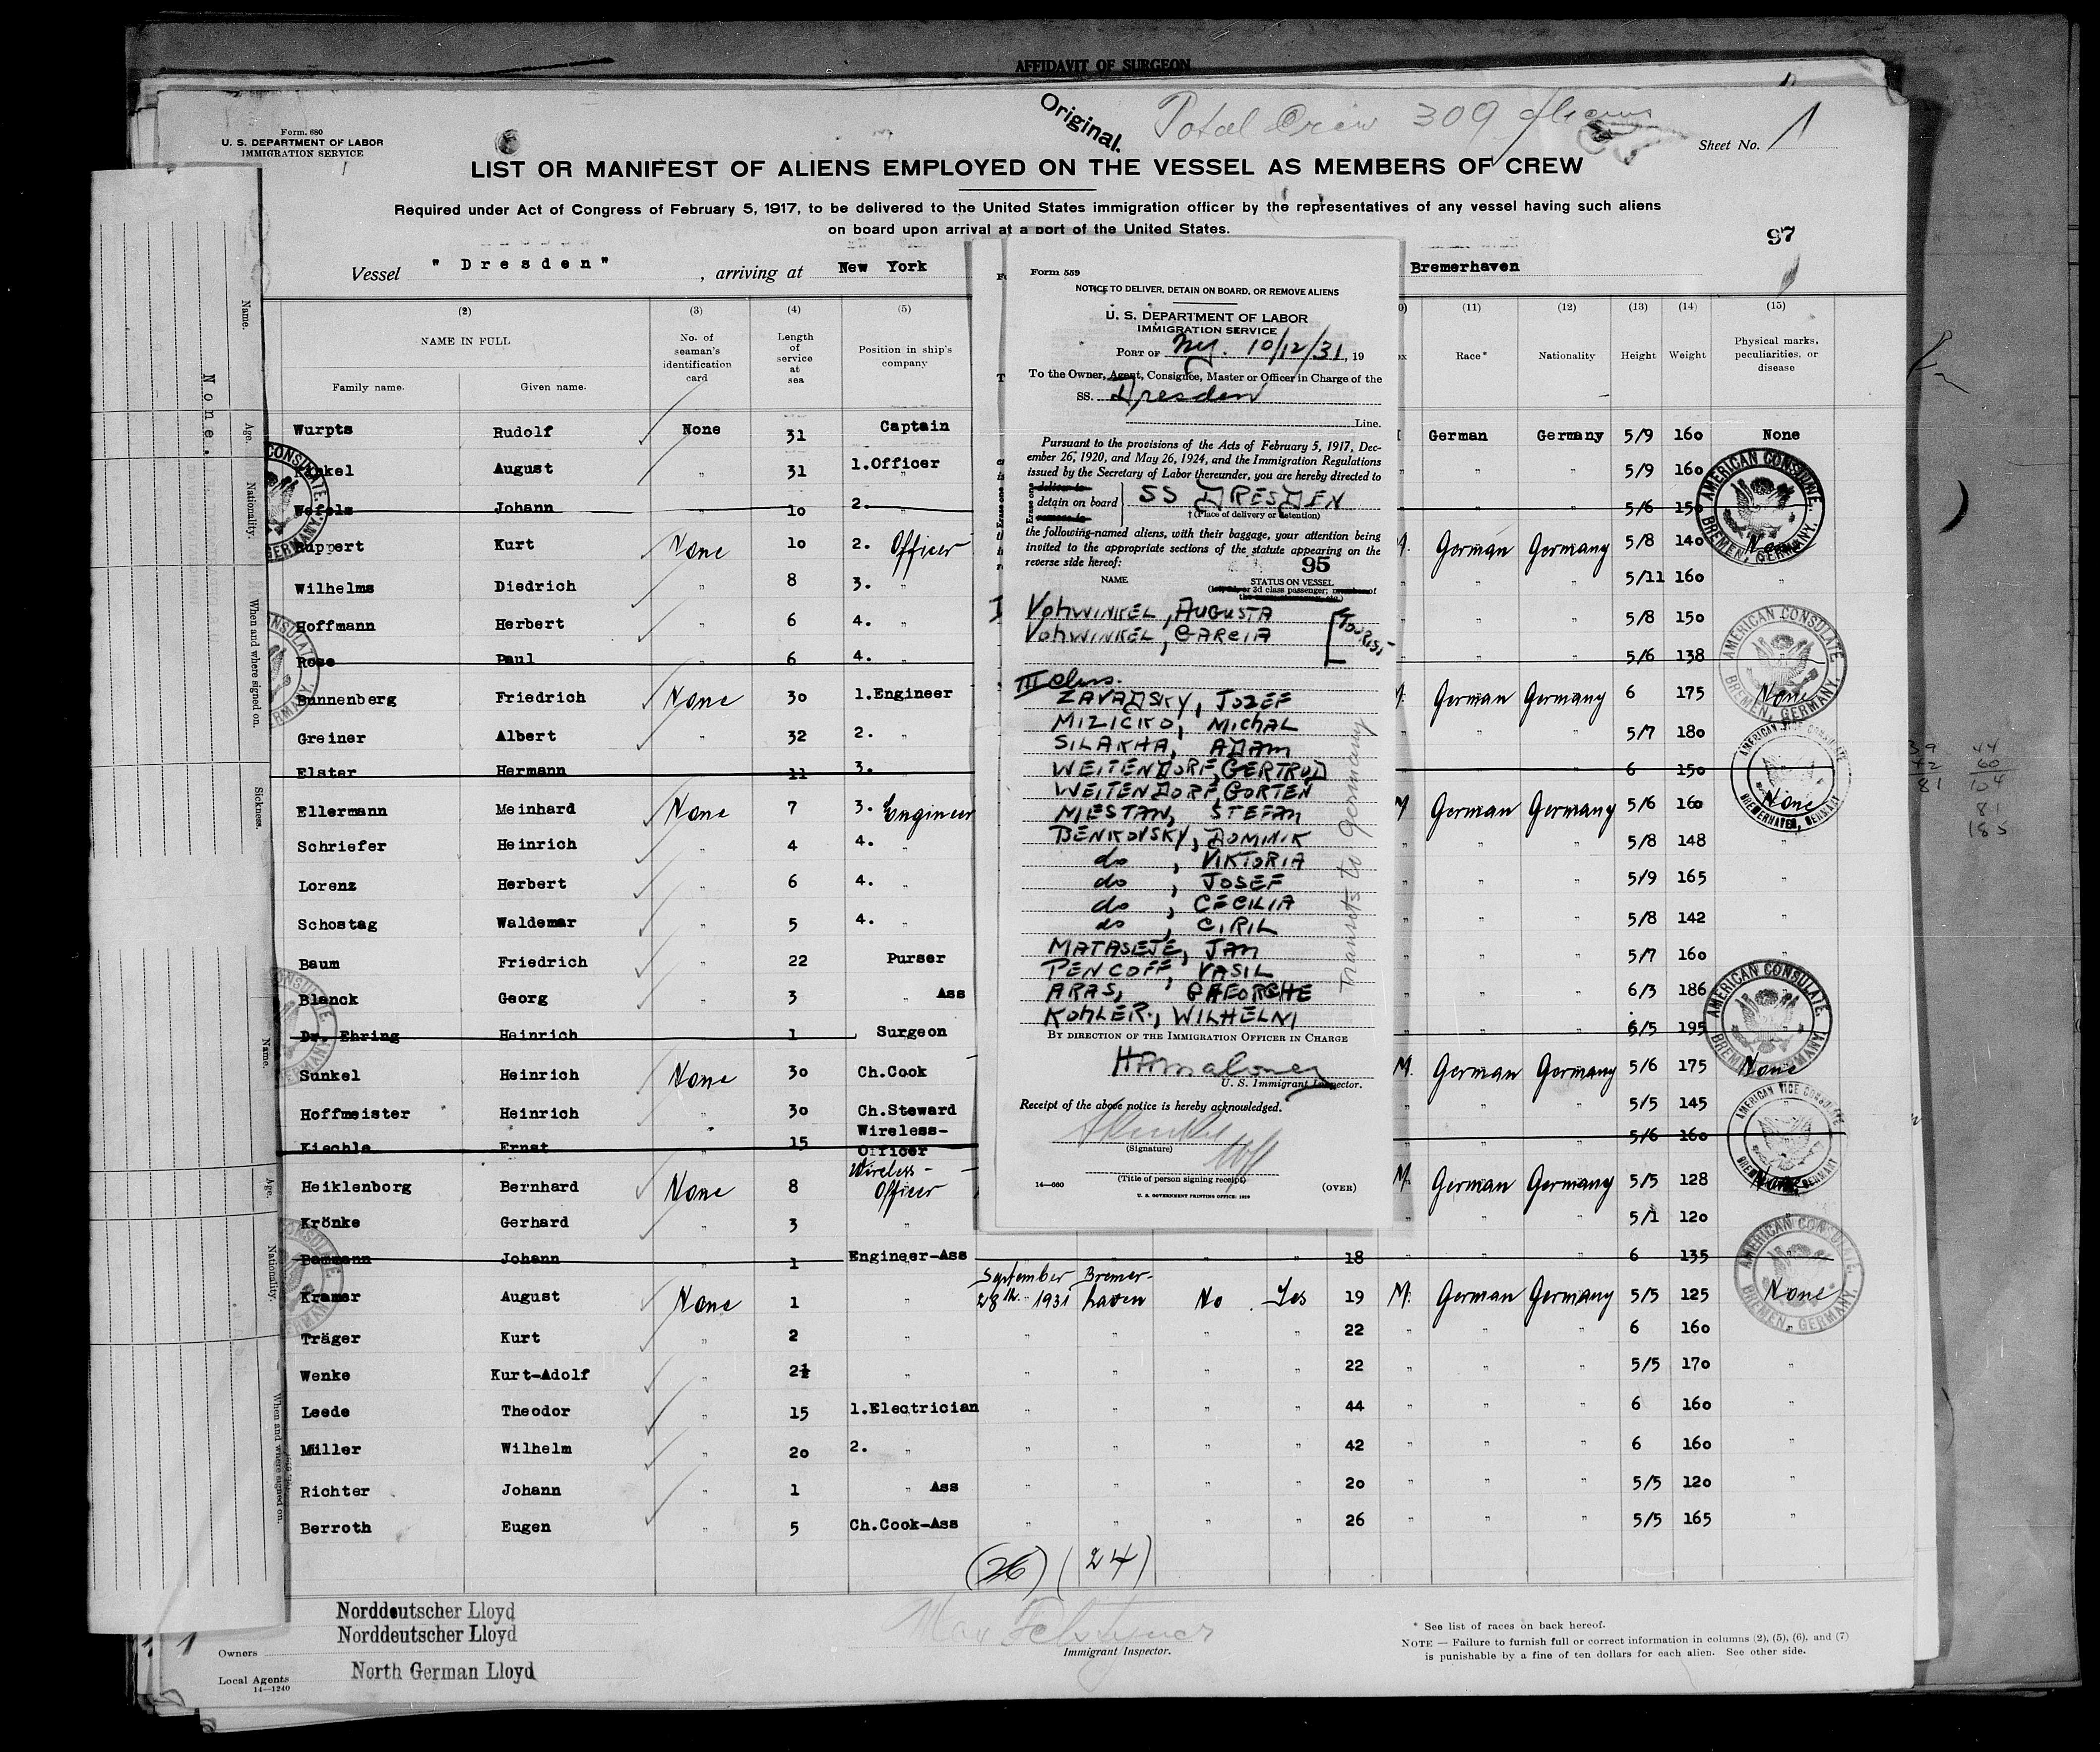 AFFIDAVIT OF SURGEON
Original.
Total Crew 309 Aliens
Form. 680
U. S. DEPARTMENT OF LABOR
IMMIGRATION SERVICE
Sheet No. 1
LIST OR MANIFEST OF ALIENS EMPLOYED ON THE VESSEL AS MEMBERS OF CREW
Required under Act of Congress of February 5, 1917, to be delivered to the United States immigration officer by the representatives of any vessel having such aliens
on board upon arrival at a port of the United States.
97
Vessel "Dresden" , arriving at New York Bremerhaven
(2) (3) (4) (5) (11) (12) (13) (14) (15)
NAME IN FULL
Family name. Given name.
No. of seaman's identification card
Length of service at sea
Position in ship's company
Race* Nationality Height Weight
Physical marks, peculiarities, or disease
Wurpts Rudolf None 31 Captain German Germany 5/9 160 None
Kinkel August " 31 1.Officer " " 5/9 160
Wefels Johann 10 2. " " 5/6 150
Ruppert Kurt None 10 2. Officer M. German Germany 5/8 140 None
Wilhelms Diedrich " 8 3. " " " " 5/11 160 "
Hoffmann Herbert " 6 4. " " " " 5/8 150
Rose Paul " 6 4. " " " " 5/6 138
Dunnenberg Friedrich None 30 1.Engineer M. German Germany 6 175 None
Greiner Albert " 32 2. " " " " 5/7 180
Elster Hermann 11 3. " " " 6 150
Ellermann Meinhard None 7 3. Engineer M German Germany 5/6 160 None
Schriefer Heinrich " 4 4. " " " " 5/8 148 "
Lorenz Herbert " 6 4. " " " " 5/9 165 "
Schostag Waldemar " 5 4. " " " " 5/8 142 "
Baum Friedrich " 22 Purser " " " 5/7 160 "
Blanck Georg " 3 " Ass " " " 6/3 186
Dr. Ehring Heinrich 1 Surgeon " " " 6/5 195
Sunkel Heinrich None 30 Ch.Cook M. German Germany 5/6 175 None
Hoffmeister Heinrich " 30 Ch.Steward " " " 5/5 145
Kiechle Ernst " 15 Wireless-Officer " " " 5/6 160
Heiklenborg Bernhard None 8 Wireless-Officer M. German Germany 5/5 128 None
Krönke Gerhard " 3 " " " " 5/1 120 "
Bammann Johann " 1 Engineer-Ass " " " " 18 " " " 6 135
Kramer August None 1 " September 28th 1931 Bremerhaven No Yes 19 M. German Germany 5/5 125 None
Träger Kurt " 2 " " " " " 22 " " " 6 160 "
Wenke Kurt-Adolf " 2½ " " " " " 22 " " " 5/5 170 "
Leede Theodor " 15 1.Electrician " " " " 44 " " " 6 160 "
Müller Wilhelm " 20 2. " " " " " 42 " " " 6 160 "
Richter Johann " 1 " Ass " " " " 20 " " " 5/5 120 "
Berroth Eugen " 5 Ch.Cook-Ass " " " " 26 " " " 5/5 165 "
(26) (24)
Form 559
NOTICE TO DELIVER, DETAIN ON BOARD, OR REMOVE ALIENS
U. S. DEPARTMENT OF LABOR
IMMIGRATION SERVICE
PORT OF N.Y. 10/12/31, 19
To the Owner, Agent, Consignee, Master or Officer in Charge of the
SS. Dresden
Line.
Pursuant to the provisions of the Acts of February 5, 1917, Dec-
ember 26, 1920, and May 26, 1924, and the Immigration Regulations
issued by the Secretary of Labor thereunder, you are hereby directed to
Erase one
deliver to
detain on board SS DRESDEN
remove to
†(Place of delivery or detention)
the following-named aliens, with their baggage, your attention being
invited to the appropriate sections of the statute appearing on the
reverse side hereof:
95
NAME STATUS ON VESSEL
(1st, 2d, or 3d class passenger; member of
VOHWINKEL, AUGUSTA
VOHWINKEL, GARCIA
TOURIST
III Class.
ZAVADSKY, JOZEF
MIZICKO, MICHAL
SILAKHA, ADAM
WEITENDORF, GERTRUD
WEITENDORF, GORTEN
NIESTAN, STEFAN
BENKOVSKY, DOMINIK
do , VIKTORIA
do , JOSEF
do , CECILIA
do , CIRIL
MATASEJE, JAN
PENCOFF, VASIL
ARAS, GHEORGHE
KOHLER, WILHELM
Transits to Germany
BY DIRECTION OF THE IMMIGRATION OFFICER IN CHARGE
U. S. Immigrant Inspector.
Receipt of the above notice is hereby acknowledged.
(Signature)
(Title of person signing receipt)
14—660
U. S. GOVERNMENT PRINTING OFFICE: 1929
(OVER)
AMERICAN CONSULATE. BREMEN, GERMANY.
AMERICAN CONSULATE BREMEN, GERMANY.
AMERICAN VICE CONSULATE BREMERHAVEN, GERMANY
AMERICAN CONSULATE. BREMEN, GERMANY
AMERICAN VICE CONSULATE BREMERHAVEN, GERMANY
AMERICAN CONSULATE. BREMEN, GERMANY.
Name.
None.
Age.
Nationality.
When and where signed on.
Sickness.
Name.
Age.
Nationality.
When and where signed on.
39
42
81
44
60
104
81
185
Norddeutscher Lloyd
Norddeutscher Lloyd
Owners
North German Lloyd
Local Agents
14—1240
1
Immigrant Inspector.
* See list of races on back hereof.
NOTE — Failure to furnish full or correct information in columns (2), (5), (6), and (7)
is punishable by a fine of ten dollars for each alien. See other side.